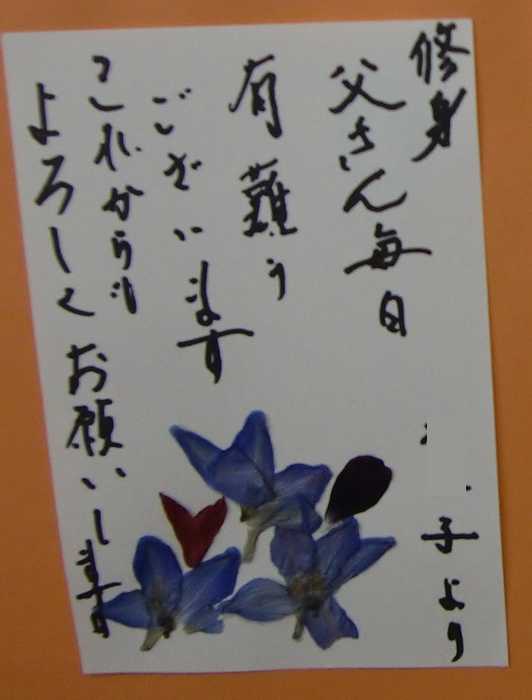 修身
父さん毎日
有難う
ございます
これからも
よろしくお願いします
子より